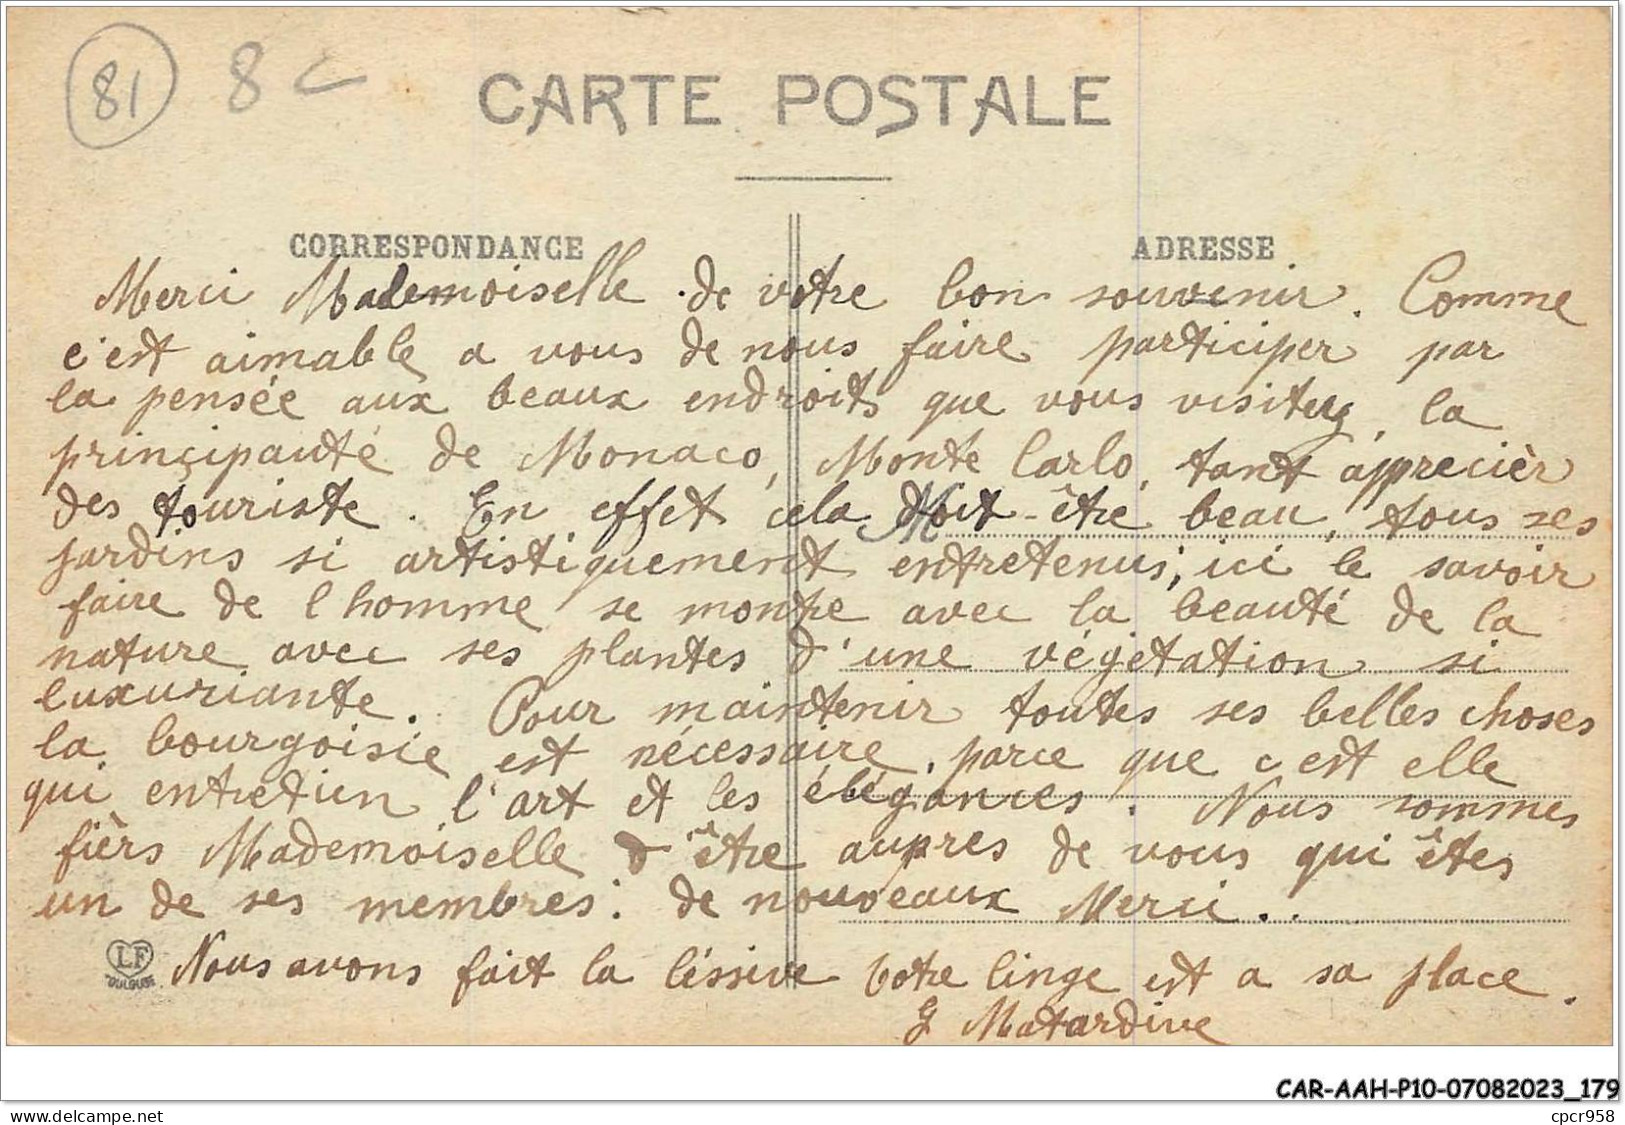 81 8
CARTE POSTALE
CORRESPONDANCE ADRESSE
Merci Mademoiselle de votre bon souvenir. Comme
c'est aimable a vous de nous faire participer par
la pensée aux beaux endroits que vous visitez, la
principauté de Monaco, Monte Carlo, tant apprecièr
des touriste. En effet cela doit-être beau, tous ses
jardins si artistiquement entretenus, ici le savoir
faire de l homme se montre avec la beauté de la
nature avec ses plantes d'une végétation si
luxuriante. Pour maintenir toutes ses belles choses
la bourgoisie est nécessaire, parce que c est elle
qui entretien l'art et les élégances. Nous sommes
fièrs Mademoiselle d'être aupres de vous qui êtes
un de ses membres: de nouveaux Merci..
LF TOULOUSE Nous avons fait la léssive votre linge est a sa place.
G Matardive
CAR-AAH-P10-07082023_179
www.delcampe.net cpcr958